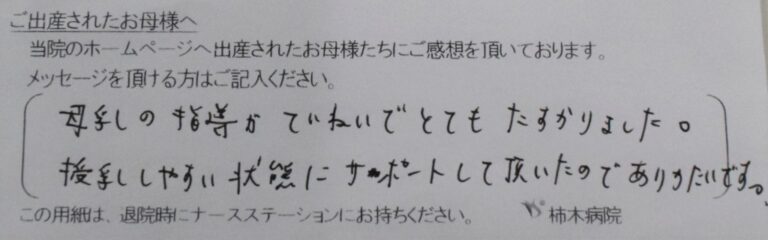 ご出産されたお母様へ
当院のホームページへ出産されたお母様たちにご感想を頂いております。
メッセージを頂ける方はご記入ください。
母乳の指導が ていねいで とても たすかりました。
授乳しやすい 状態に サポートして 頂いたので ありがたいです。
この用紙は、退院時にナースステーションにお持ちください。 柿木病院